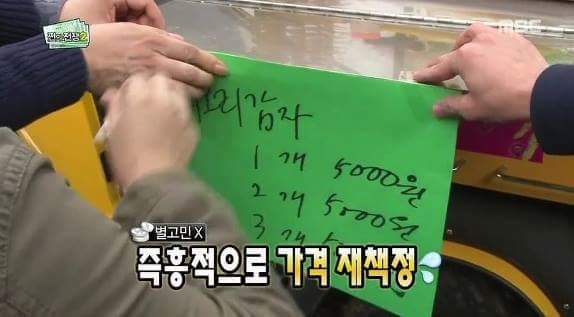 쩐의전쟁2
MBC
감자
1개 5000원
2개 5000원
3개
별고민 X
즉흥적으로 가격 재책정